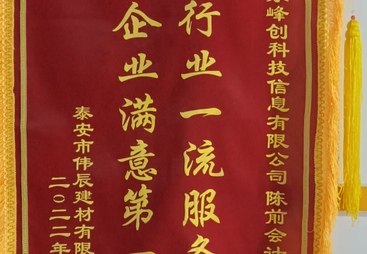 峰创科技信息有限公司 陈前会计
行业一流服务
企业满意第一
泰安市伟辰建材有限
二〇二二年